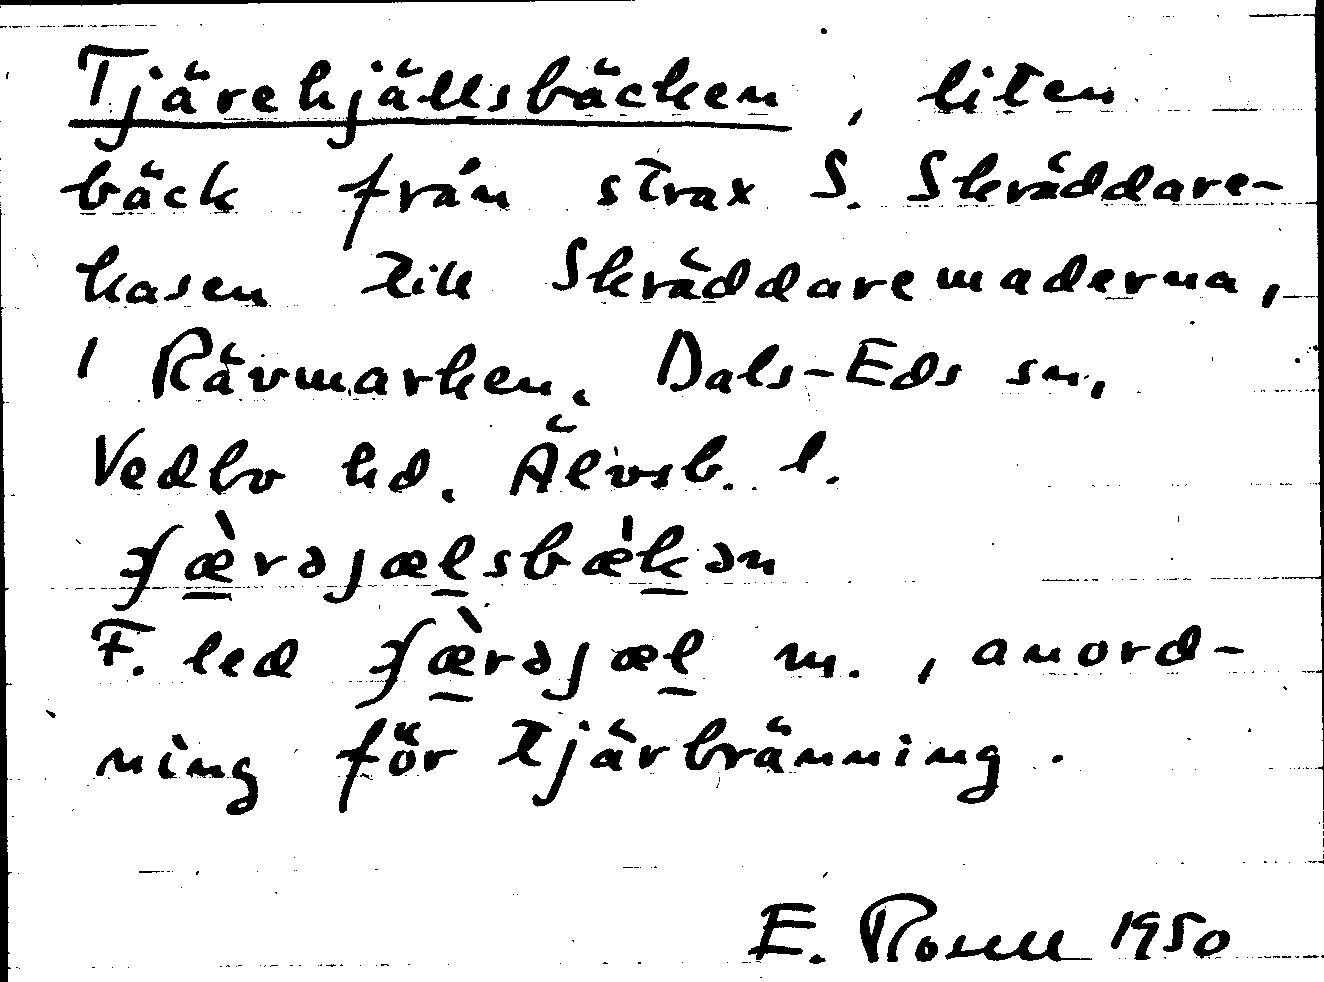 Tjärehjällsbäcken, liten
bäck från strax S. Skräddare-
kasen till Skräddaremaderna,
i Rävmarken, Dals-Eds sn,
Vedbo hd. Älvsb. l.
ʄæ̀rəjælsbæ'kən
F. led ʄæ̀rəjæl m., anord-
ning för tjärbränning.
E. Rosell 1950